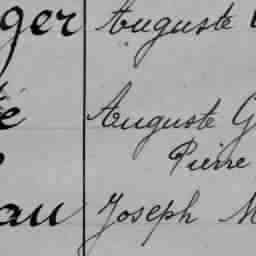 ger Auguste
é Auguste G
Pierre
au Joseph M